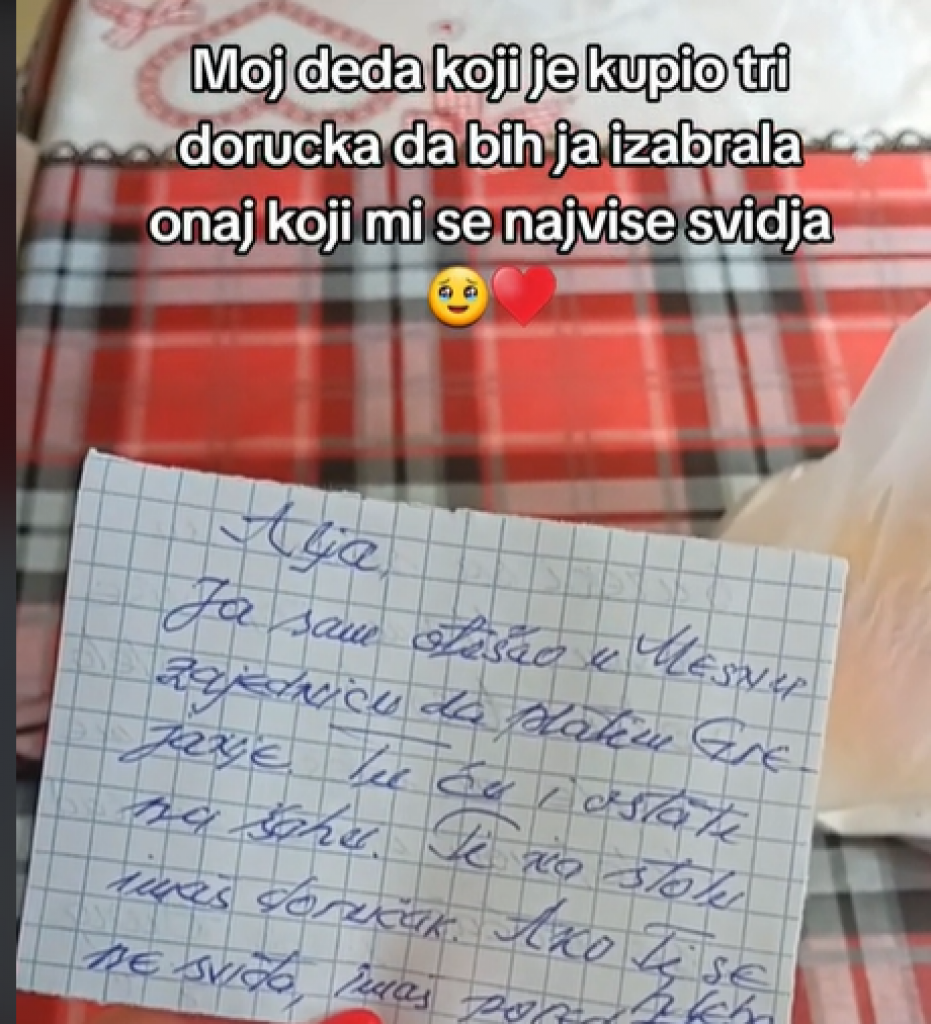 Moj deda koji je kupio tri
dorucka da bih ja izabrala
onaj koji mi se najvise svidja
🥹❤️
Alja,
Ja sam otišao u Mesnu
zajednicu da platim Gre-
janje. Tu ću i ostati
na šahu. Ti na stolu
imaš doručak. Ako Ti se
ne sviđa, imaš pored